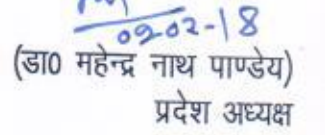 09-02-18
(डा० महेन्द्र नाथ पाण्डेय)
प्रदेश अध्यक्ष